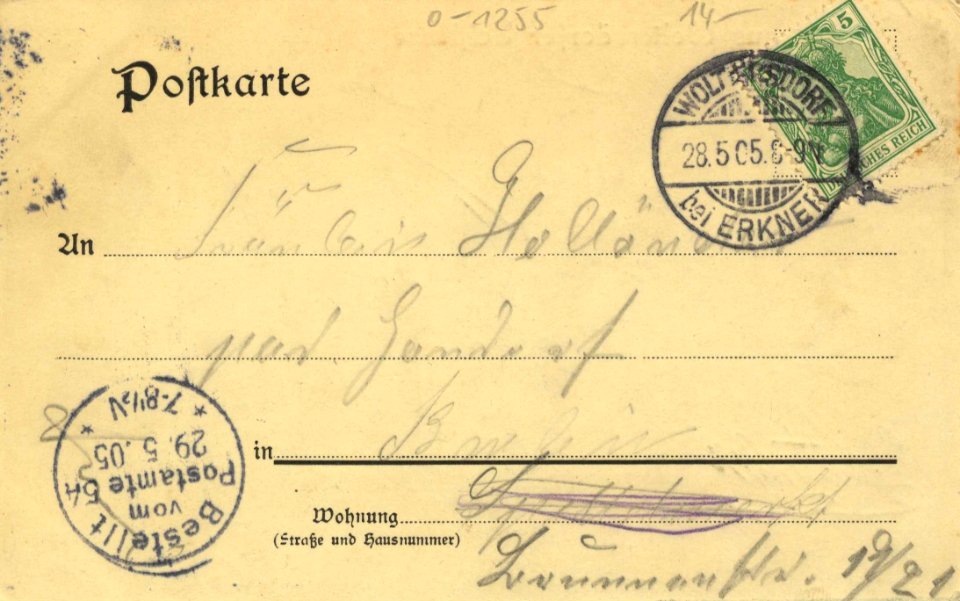 0-1255 14-
Postkarte
5
DEUTSCHES REICH
WOLTERSDORF
28.5.05. 8-9N
bei ERKNER
An Fräulein Holländer
in Berlin
Wohnung
(Straße und Hausnummer)
Brunnenstr. 19/21
Bestellt
vom
Postamte 54
29.5.05
7-8½V